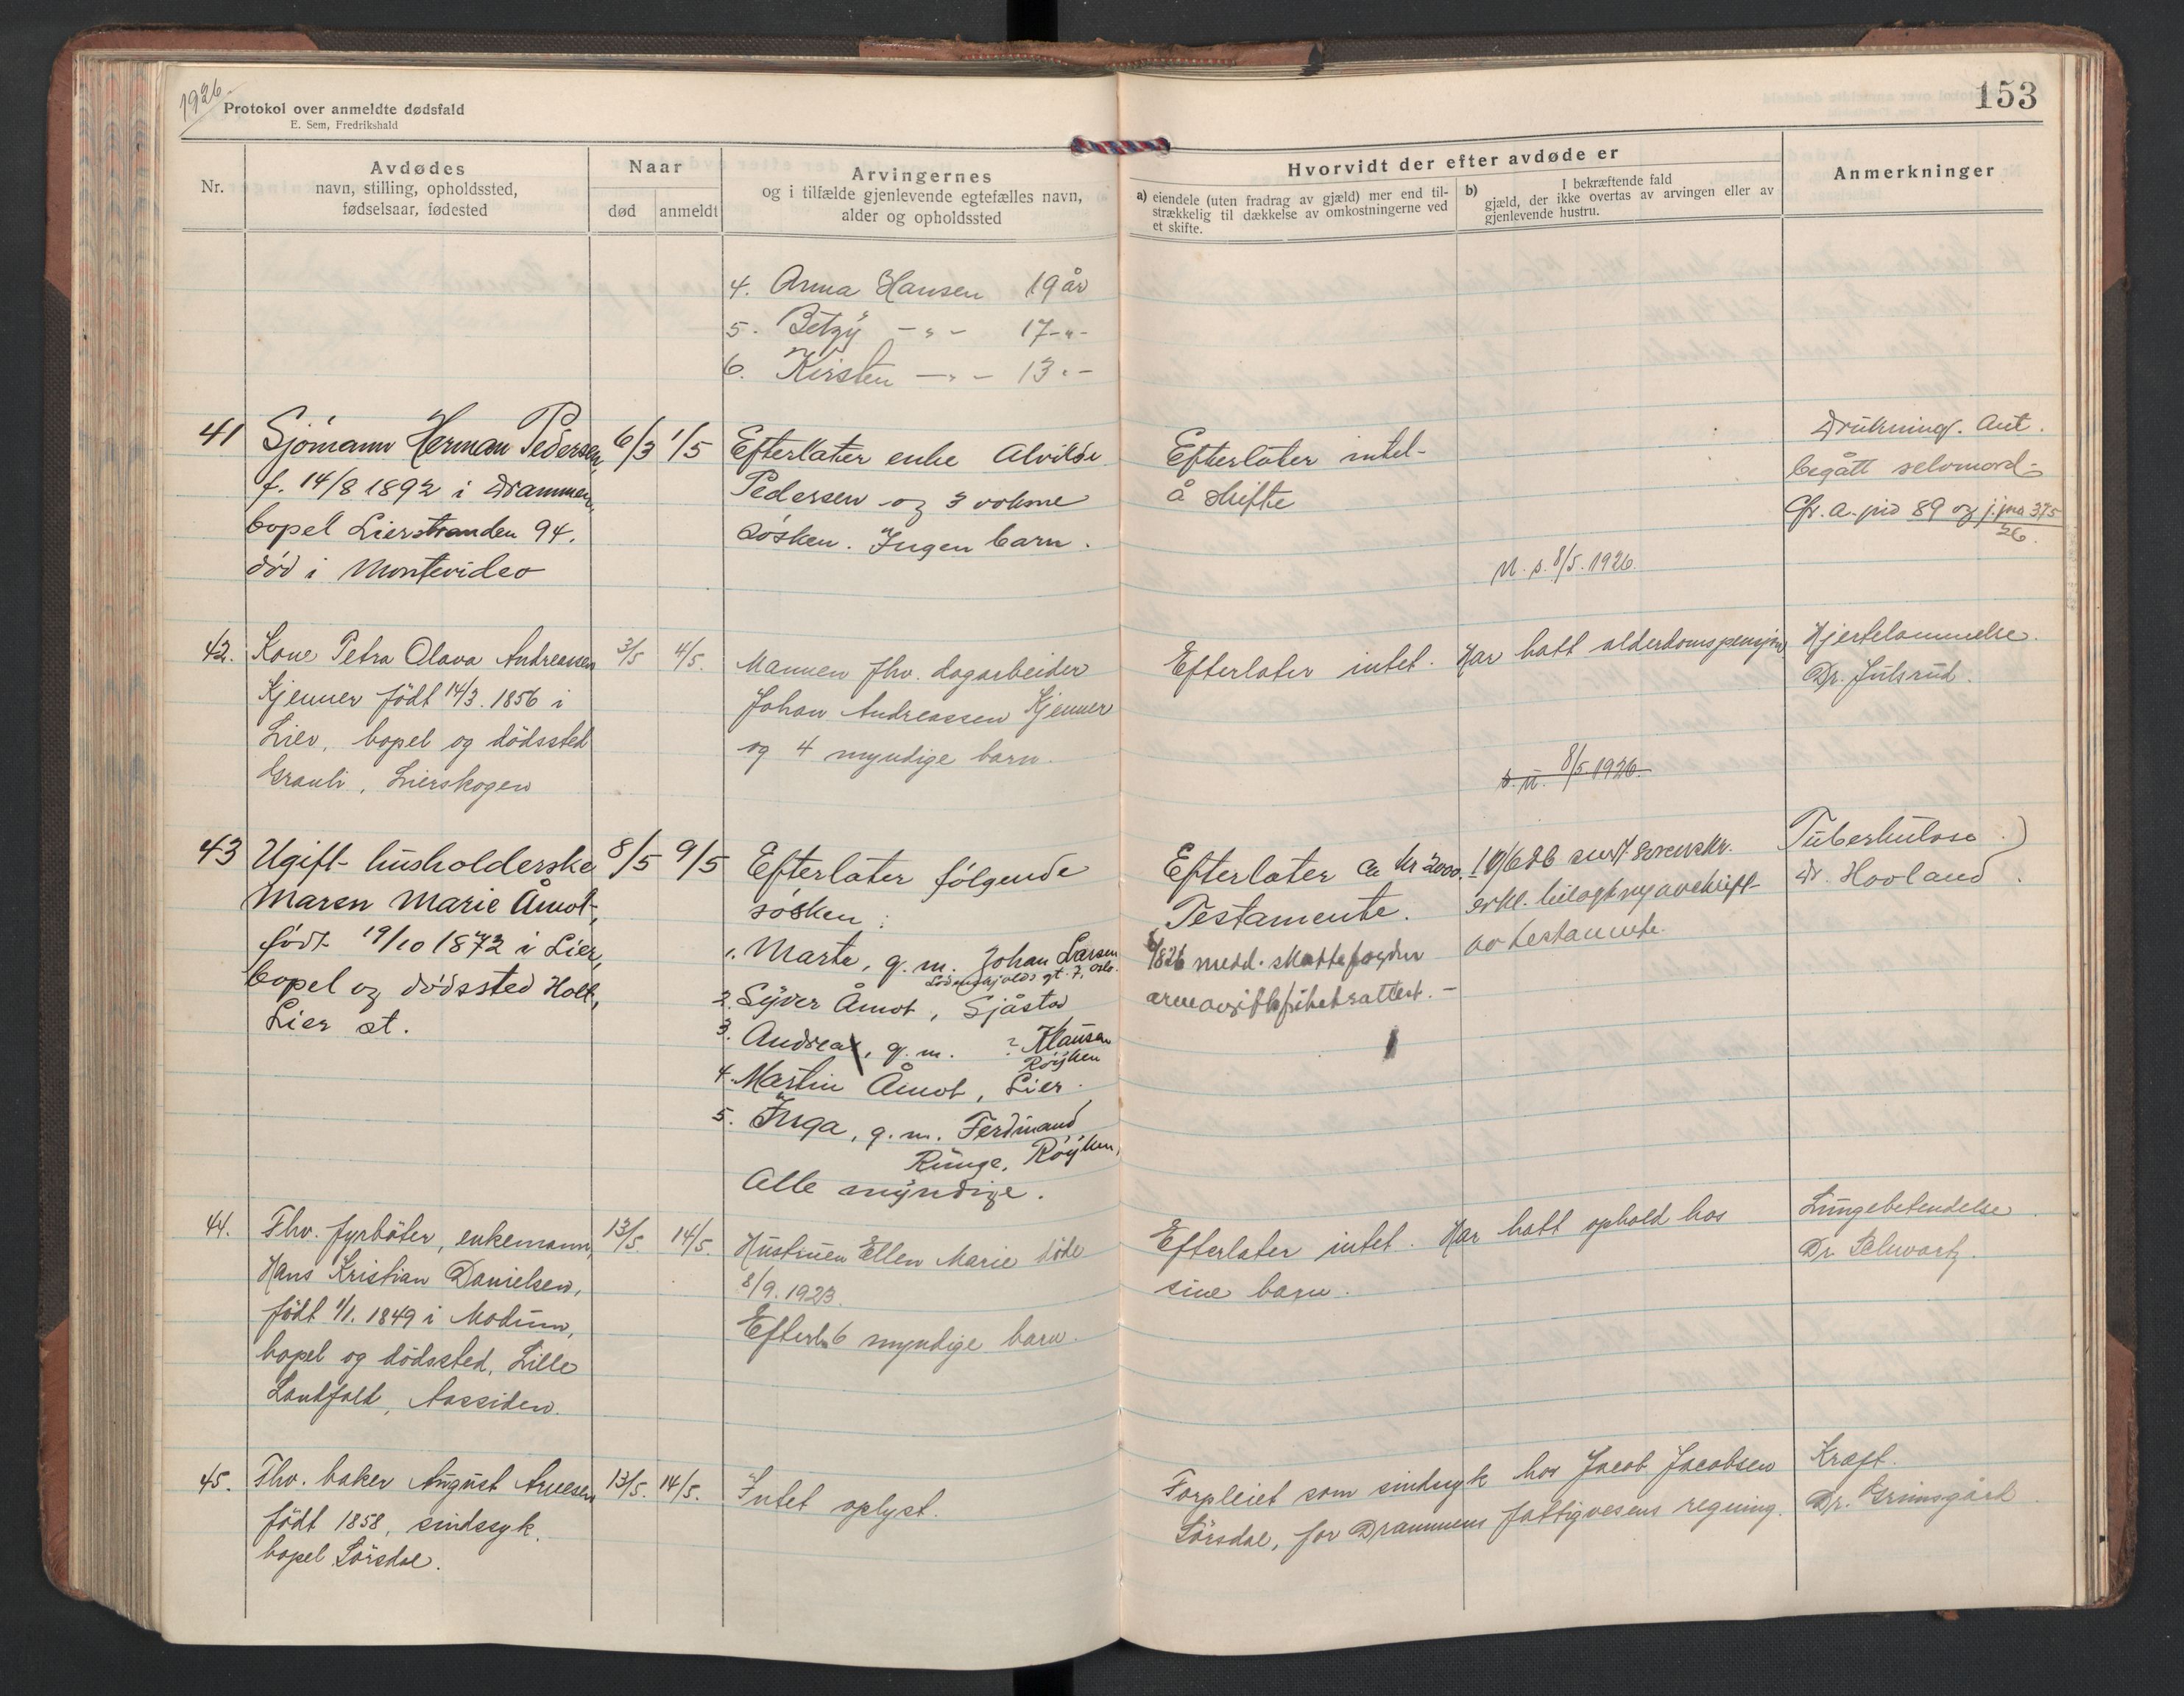 1926
Protokol over anmeldte dødsfald
E. Sem, Fredrikshald
153
Nr.
Avdødes
navn, stilling, opholdssted,
fødselsaar, fødested
Naar
død
anmeldt
Arvingernes
og i tilfælde gjenlevende egtefælles navn,
alder og opholdssted
Hvorvidt der efter avdøde er
a) eiendele (uten fradrag av gjæld) mer end til-
strækkelig til dækkelse av omkostningerne ved
et skifte.
b) I bekræftende fald
gjæld, der ikke overtas av arvingen eller av
gjenlevende hustru.
Anmerkninger
4. Anna Hansen 19 år
5. Betzy -"- 17 -"-
6. Kirsten -"- 13 "-
41
Sjömann Herman Pedersen
f. 14/8 1892 i Drammen,
bopel Lierstranden 94.
död i Montevideo
6/3
1/5
Efterlater enke Alvilde
Pedersen og 3 voksne
søsken. Ingen barn.
Efterlater intet
å skifte
N. s. 8/5. 1926.
Drukning. Ant.
begått selvmord.
Cfr. a. pid 89 og j.jno 375/26.
42.
Kone Petra Olava Andreassen
Kjenner födt 14/3. 1856 i
Lier, bopel og dödssted
Grauli, Lierskogen
3/5
4/5.
Mannen fhv. dagarbeider
Johan Andreassen Kjenner
og 4 myndige barn.
Efterlater intet. Har hatt alderdomspensjon
s. N. 8/5. 1926.
Hjertelammelse.
Dr. Julsrud.
43
Ugift husholderske
Maren Marie Åmot,
født 19/10 1872 i Lier,
bopel og dødssted Holt,
Lier st.
8/5
9/5
Efterlater følgende
søsken:
1. Marte, g. m. Johan Larsen
gt. 7, Oslo.
2. Syver Åmot, Sjåstad
3. Andrea, g. m. ? Klausen
Røyken
4. Martin Åmot, Lier.
5. Inga, g. m. Ferdinand
Runge, Røyken,
Alle myndige.
Efterlater ca kr 2000.
Testamente.
medd. skattefogden
10/6 26 sendt sorenskr.
erkl. bilagt ny avskrift
av testamente.
Tuberkulose.
dr. Hovland.
44.
Fhv. fyrböter, enkemann,
Hans Kristian Danielsen,
födt 1/1. 1849 i Modum,
bopel og dödssted, Lille
Landfald, Aassiden.
13/5
14/5.
Hustruen Ellen Marie döde
8/9. 1923.
Efterl. 6 myndige barn.
Efterlater intet. Har hatt ophold hos
sine barn.
Lungebetendelse
Dr Schwartz.
45.
Fhv. baker August Arnesen
födt 1858, sindssyk.
bopel Sörsdal.
13/5.
14/5.
Intet oplyst.
Forpleiet som sindssyk hos Jacob Jacobsen
Sörsdal, for Drammens fattigvesens regning.
Kræft.
Dr. Grimsgård